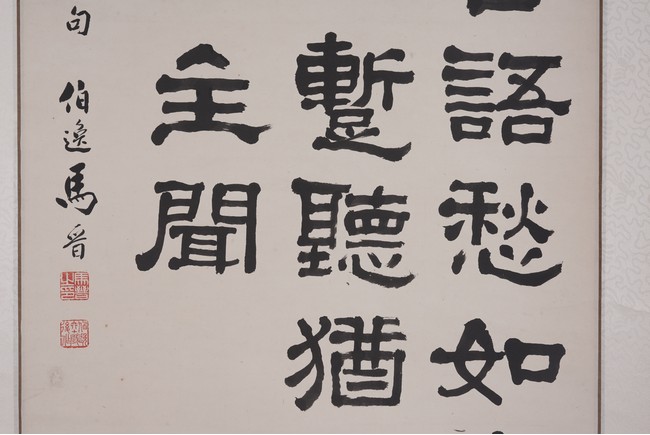 語愁如
蹔聽猶
全聞
句 伯逸馬晉